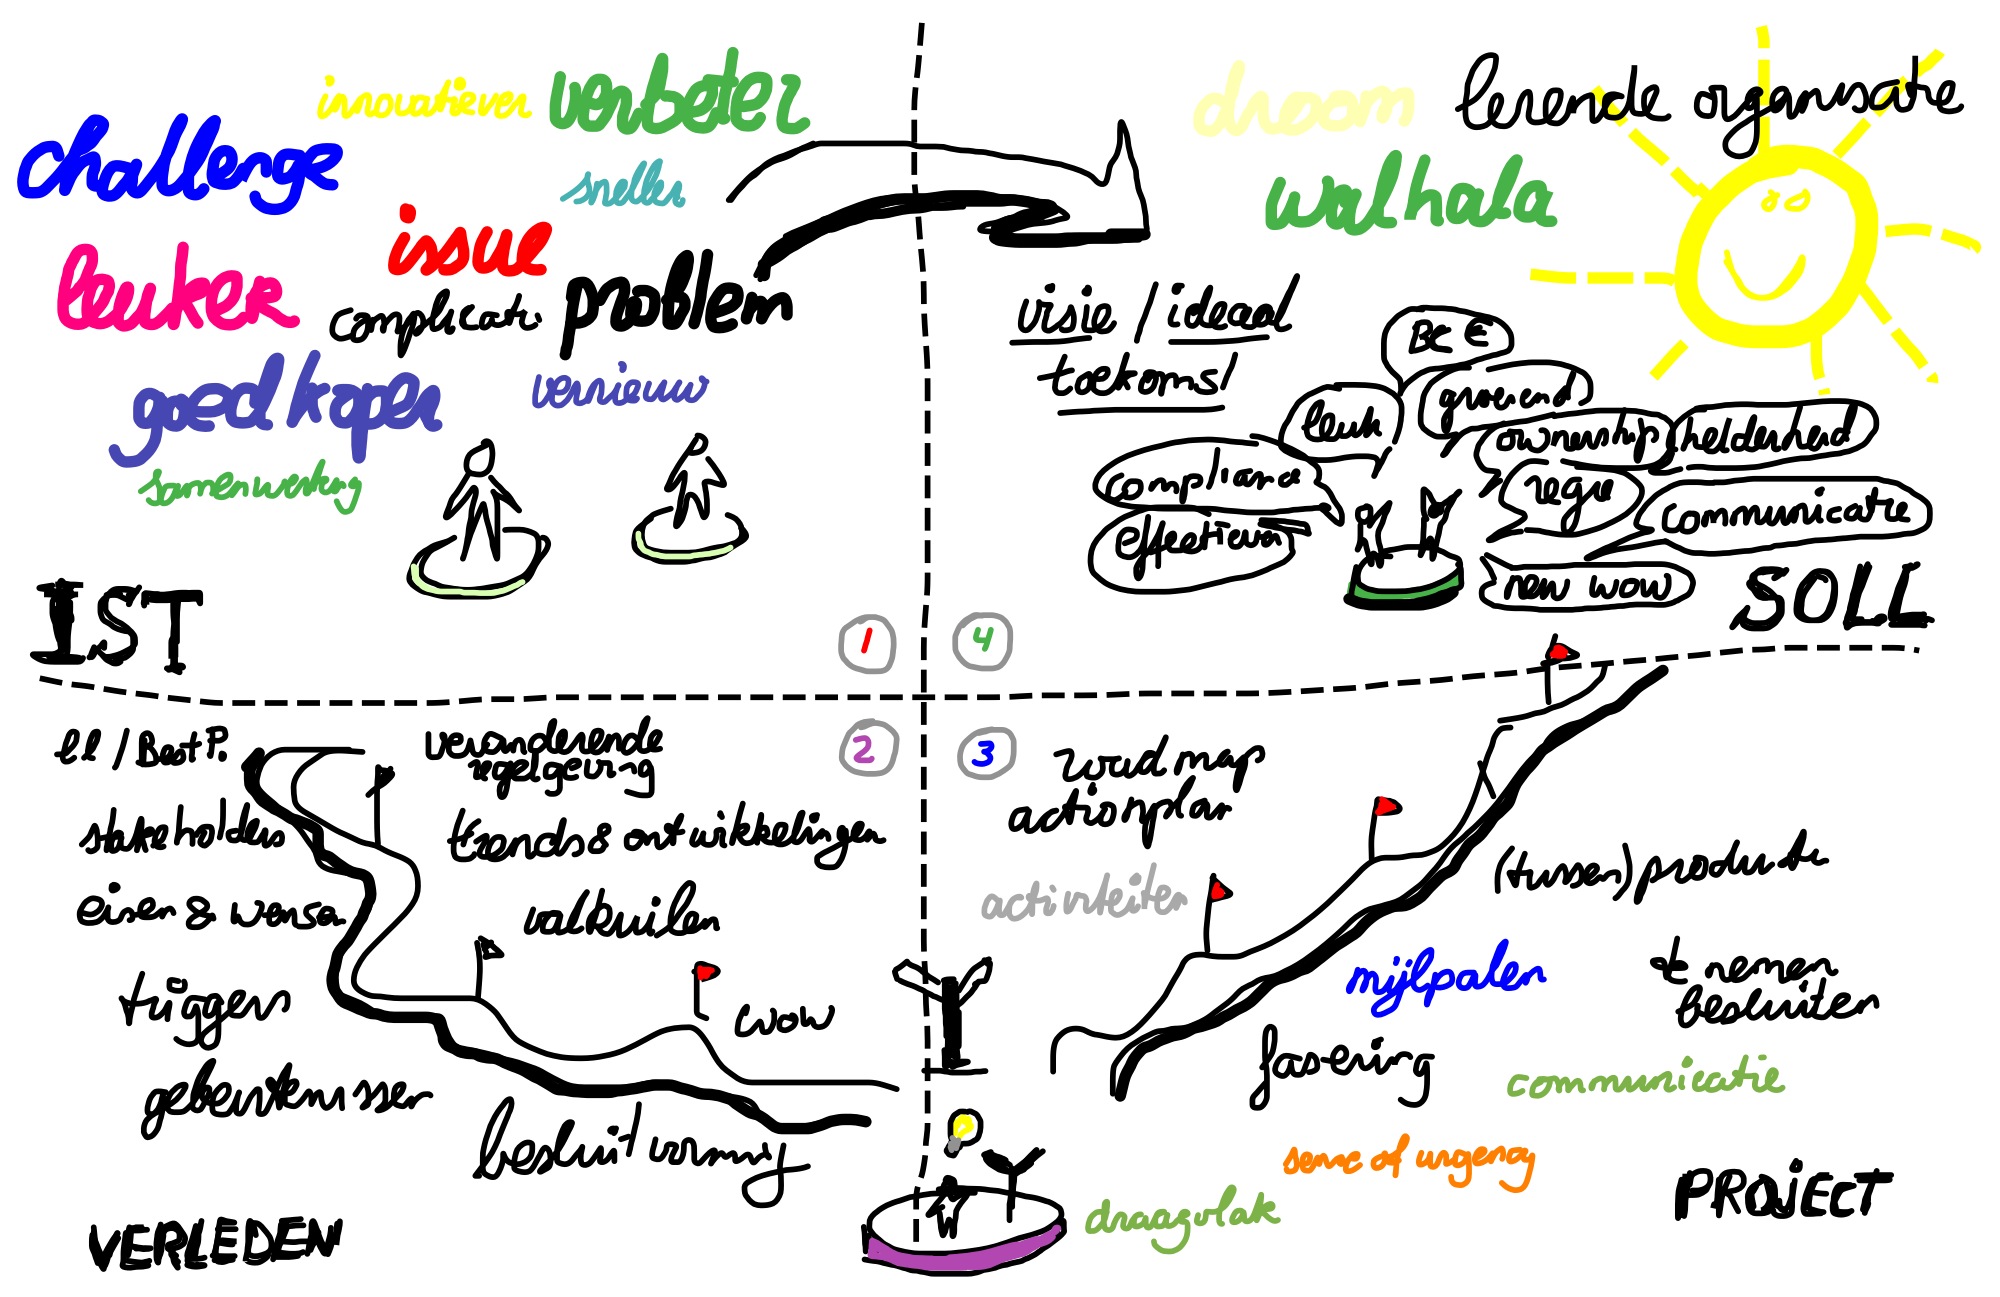 innovatiever
verbeter
challenge
sneller
issue
leuker
complicati
problem
goedkoper
vernieuw
samenwerking
IST
1
droom
lerende organisatie
walhala
visie / ideaal
toekomst
BC €
groeiend
leuk
ownership
helderheid
compliance
regie
communicatie
effectiever
new wow
SOLL
4
ll / Best P.
veranderende
regelgeving
2
stakeholders
trends & ontwikkelingen
eisen & wensen
valkuilen
triggers
wow
gebeurtenissen
besluitvorming
VERLEDEN
3
road map
actionplan
activiteiten
(tussen) producten
mijlpalen
te nemen
besluiten
fasering
communicatie
sense of urgency
draagvlak
PROJECT